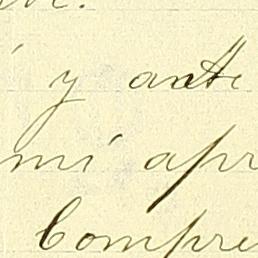 y ante
mi apr
Compre